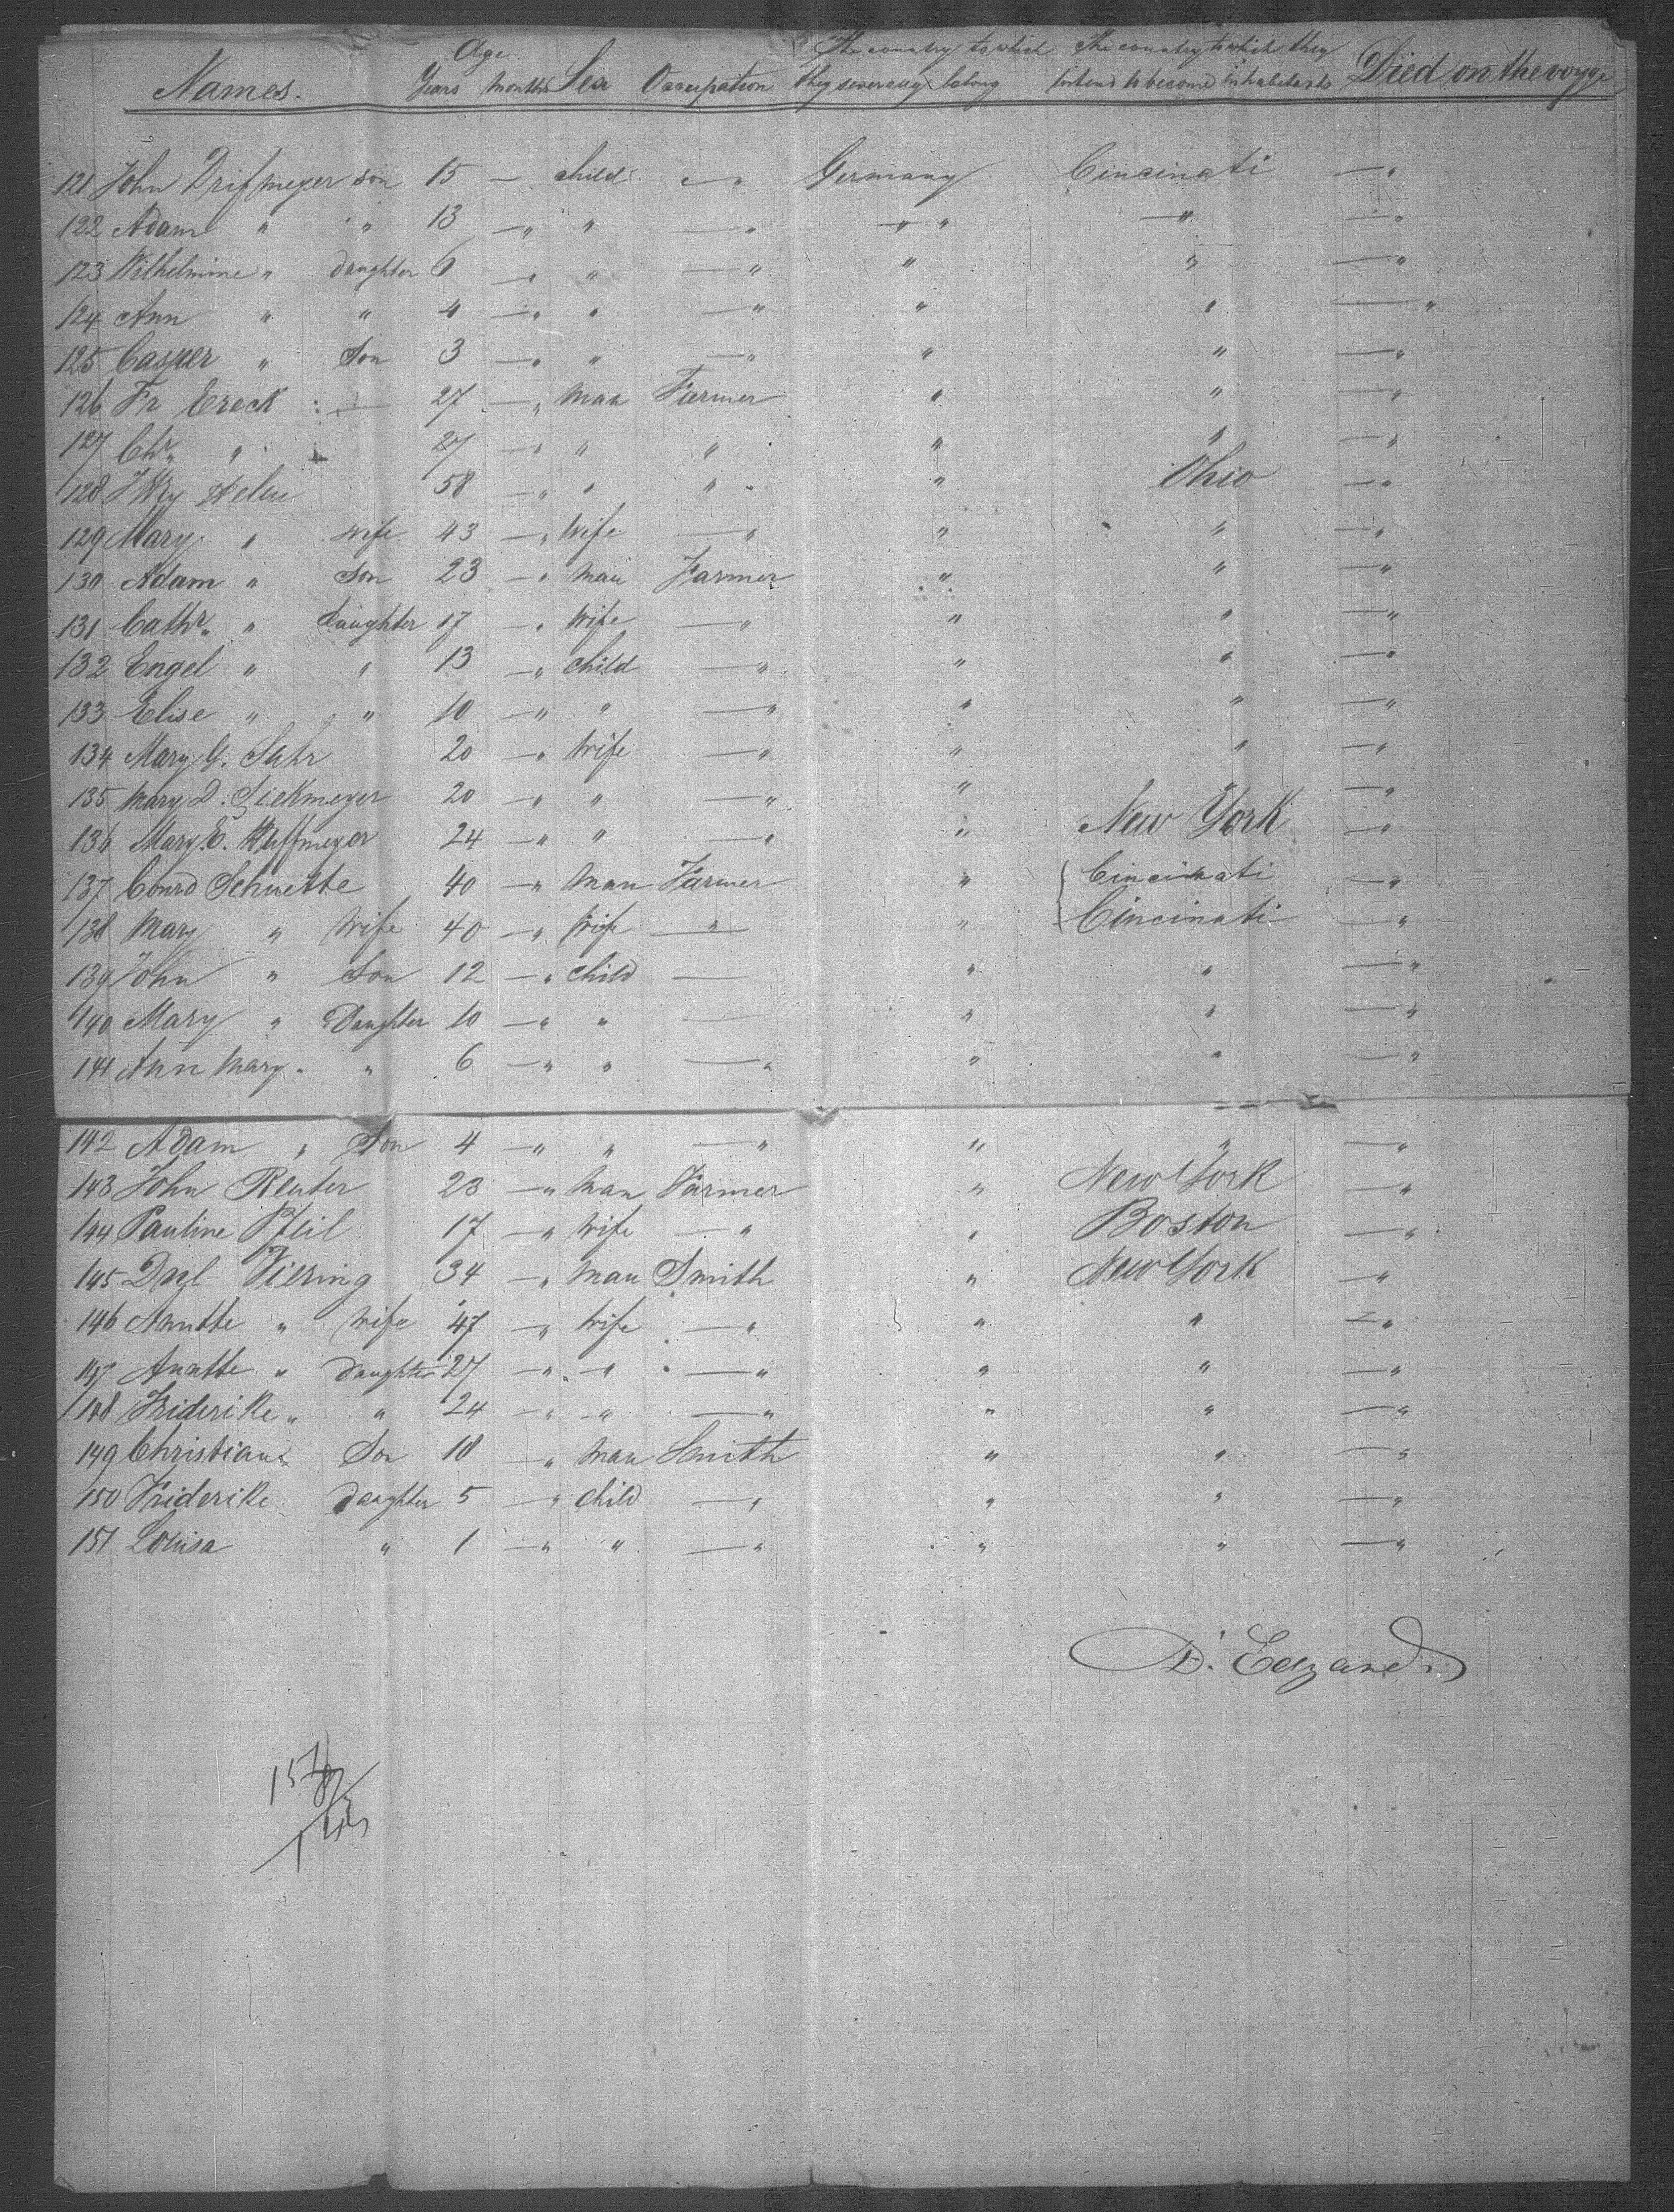 Names. Age Years Months Sex Occupation The country to which they severally belong The country to which they intend to become inhabitants Died on the voyge
121 John Drifmeyer son 15 — child — " Germany Cincinati — "
122 Adam " " 13 — " " — " — " " — " — "
123 Wilhelmine " Daughter 6 — " " — " " " — "
124 Ann " " 4 — " " — " " " — "
125 Casper " Son 3 — " " — " " " — "
126 Fr Ereck : — 27 — " Man Farmer " " — "
127 Chr. " 27 — " " " " " — "
128 58 — " " " " Ohio — "
129 Mary " wife 43 — " Wife — " " " — "
130 Adam " Son 23 — " Man Farmer " " — "
131 Cathr. " Daughter 17 — " Wife — " " " — "
132 Engel " " 13 — " child — " " " — "
133 Elise " " 10 — " " — " " " — "
134 Mary G. Suhr 20 — " Wife — " " " — "
135 Mary D. Siekmeyer 20 — " " — " " " — "
136 Mary E. 24 — " " — " " New York — "
137 Conrd Schuette 40 — " Man Farmer " Cincinati — "
138 Mary " Wife 40 — " Wife — " " Cincinati — "
139 John " Son 12 — " child — " " — "
140 Mary " Daughter 10 — " " — " " — "
141 Ann Mary " " 6 — " " — " " " — "
142 Adam " Son 4 — " " — " " " — "
143 John Reuter 23 — " Man Farmer " New York — "
144 Pauline Pfeil 17 — " Wife — " " Boston — "
145 Dnl Viering 34 — " Man Smith " New York — "
146 Annette " Wife 47 — " Wife — " " " — "
147 Anatte " Daughter 27 — " — " — " " " — "
148 Friderike " " 24 — " — " — " " " — "
149 Christian " Son 18 — " Man Smith " " — "
150 Friderike Daughter 5 — " child — " " " — "
151 Louisa " 1 — " " — " " " — "
D. Edzards